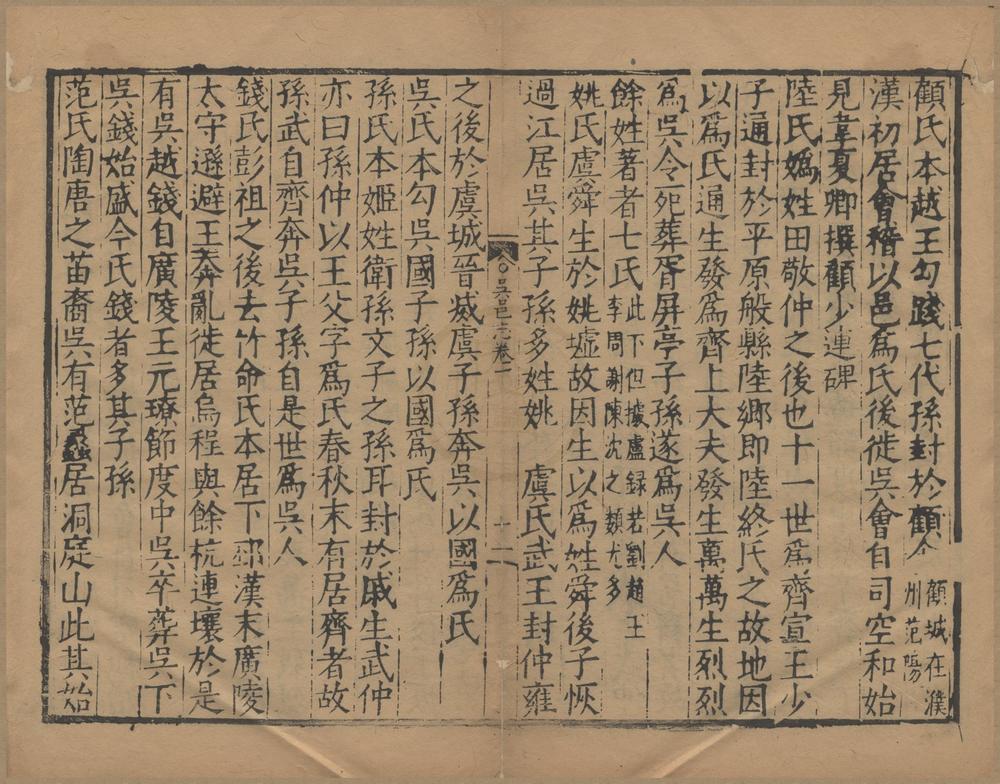 顧氏本越王勾踐七代孫封於顧今顧城在濮州范陽
漢初居會稽以邑爲氏後徙吳會自司空和始
見韋夏卿撰顧少連碑
陸氏嬀姓田敬仲之後也十一世爲齊宣王少
子通封於平原般縣陸鄉即陸終氏之故地因
以爲氏通生發爲齊上大夫發生萬萬生烈烈
爲吳令死葬胥屏亭子孫遂爲吳人
餘姓著者七氏此下但據盧録若劉趙王李周謝陳沈之類尤多
姚氏虞舜生於姚墟故因生以爲姓舜後子恢
過江居吳其子孫多姓姚　虞氏武王封仲雍
吳邑志卷一
十二
之後於虞城晉威虞子孫奔吳以國爲氏
吳氏本勾吳國子孫以國爲氏
孫氏本姬姓衛孫文子之孫耳封於戚生武仲
亦曰孫仲以王父字爲氏春秋末有居齊者故
孫武自齊奔吳子孫自是世爲吳人
錢氏彭祖之後去竹命氏本居下邳漢末廣陵
太守遜避王莽亂徙居烏程與餘杭連壤於是
有吳越錢自廣陵王元璙節度中吳卒葬吳下
吳錢始盛今氏錢者多其子孫
范氏陶唐之苗裔吳有范蠡居洞庭山此其始